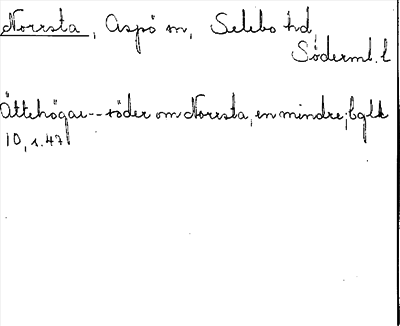 Norrsta, Aspö sn, Selebo hd,
Söderml. l
Ättehögar -- söder om Norrsta, en mindre; bglk
10, s. 47